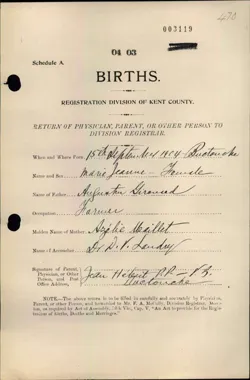 430
003119
04 03
Schedule A.
BIRTHS.
REGISTRATION DIVISION OF KENT COUNTY.
RETURN OF PHYSICIAN, PARENT, OR OTHER PERSON TO
DIVISION REGISTRAR.
When and Where Born 15th September 1904 Buctouche
Name and Sex Marie Jeanne - Female
Name of Father Augustin Girouard
Occupation Farmer
Maiden Name of Mother Maillet
Name of Accoucheur Dr D. V. Landry
Signature of Parent,
Physician, or other
Person, and Post
Office Address
Jean Hebert P.P.
Buctouche
NOTE.—The above return is to be filled in carefully and accurately by Physician,
Parent, or other Person, and forwarded to Mr. F. A. McCully, Division Registrar, Moncton,
as required by Act of Assembly, 50th Vic., Cap. V, "An Act to provide for the Registration
of Births, Deaths and Marriages."